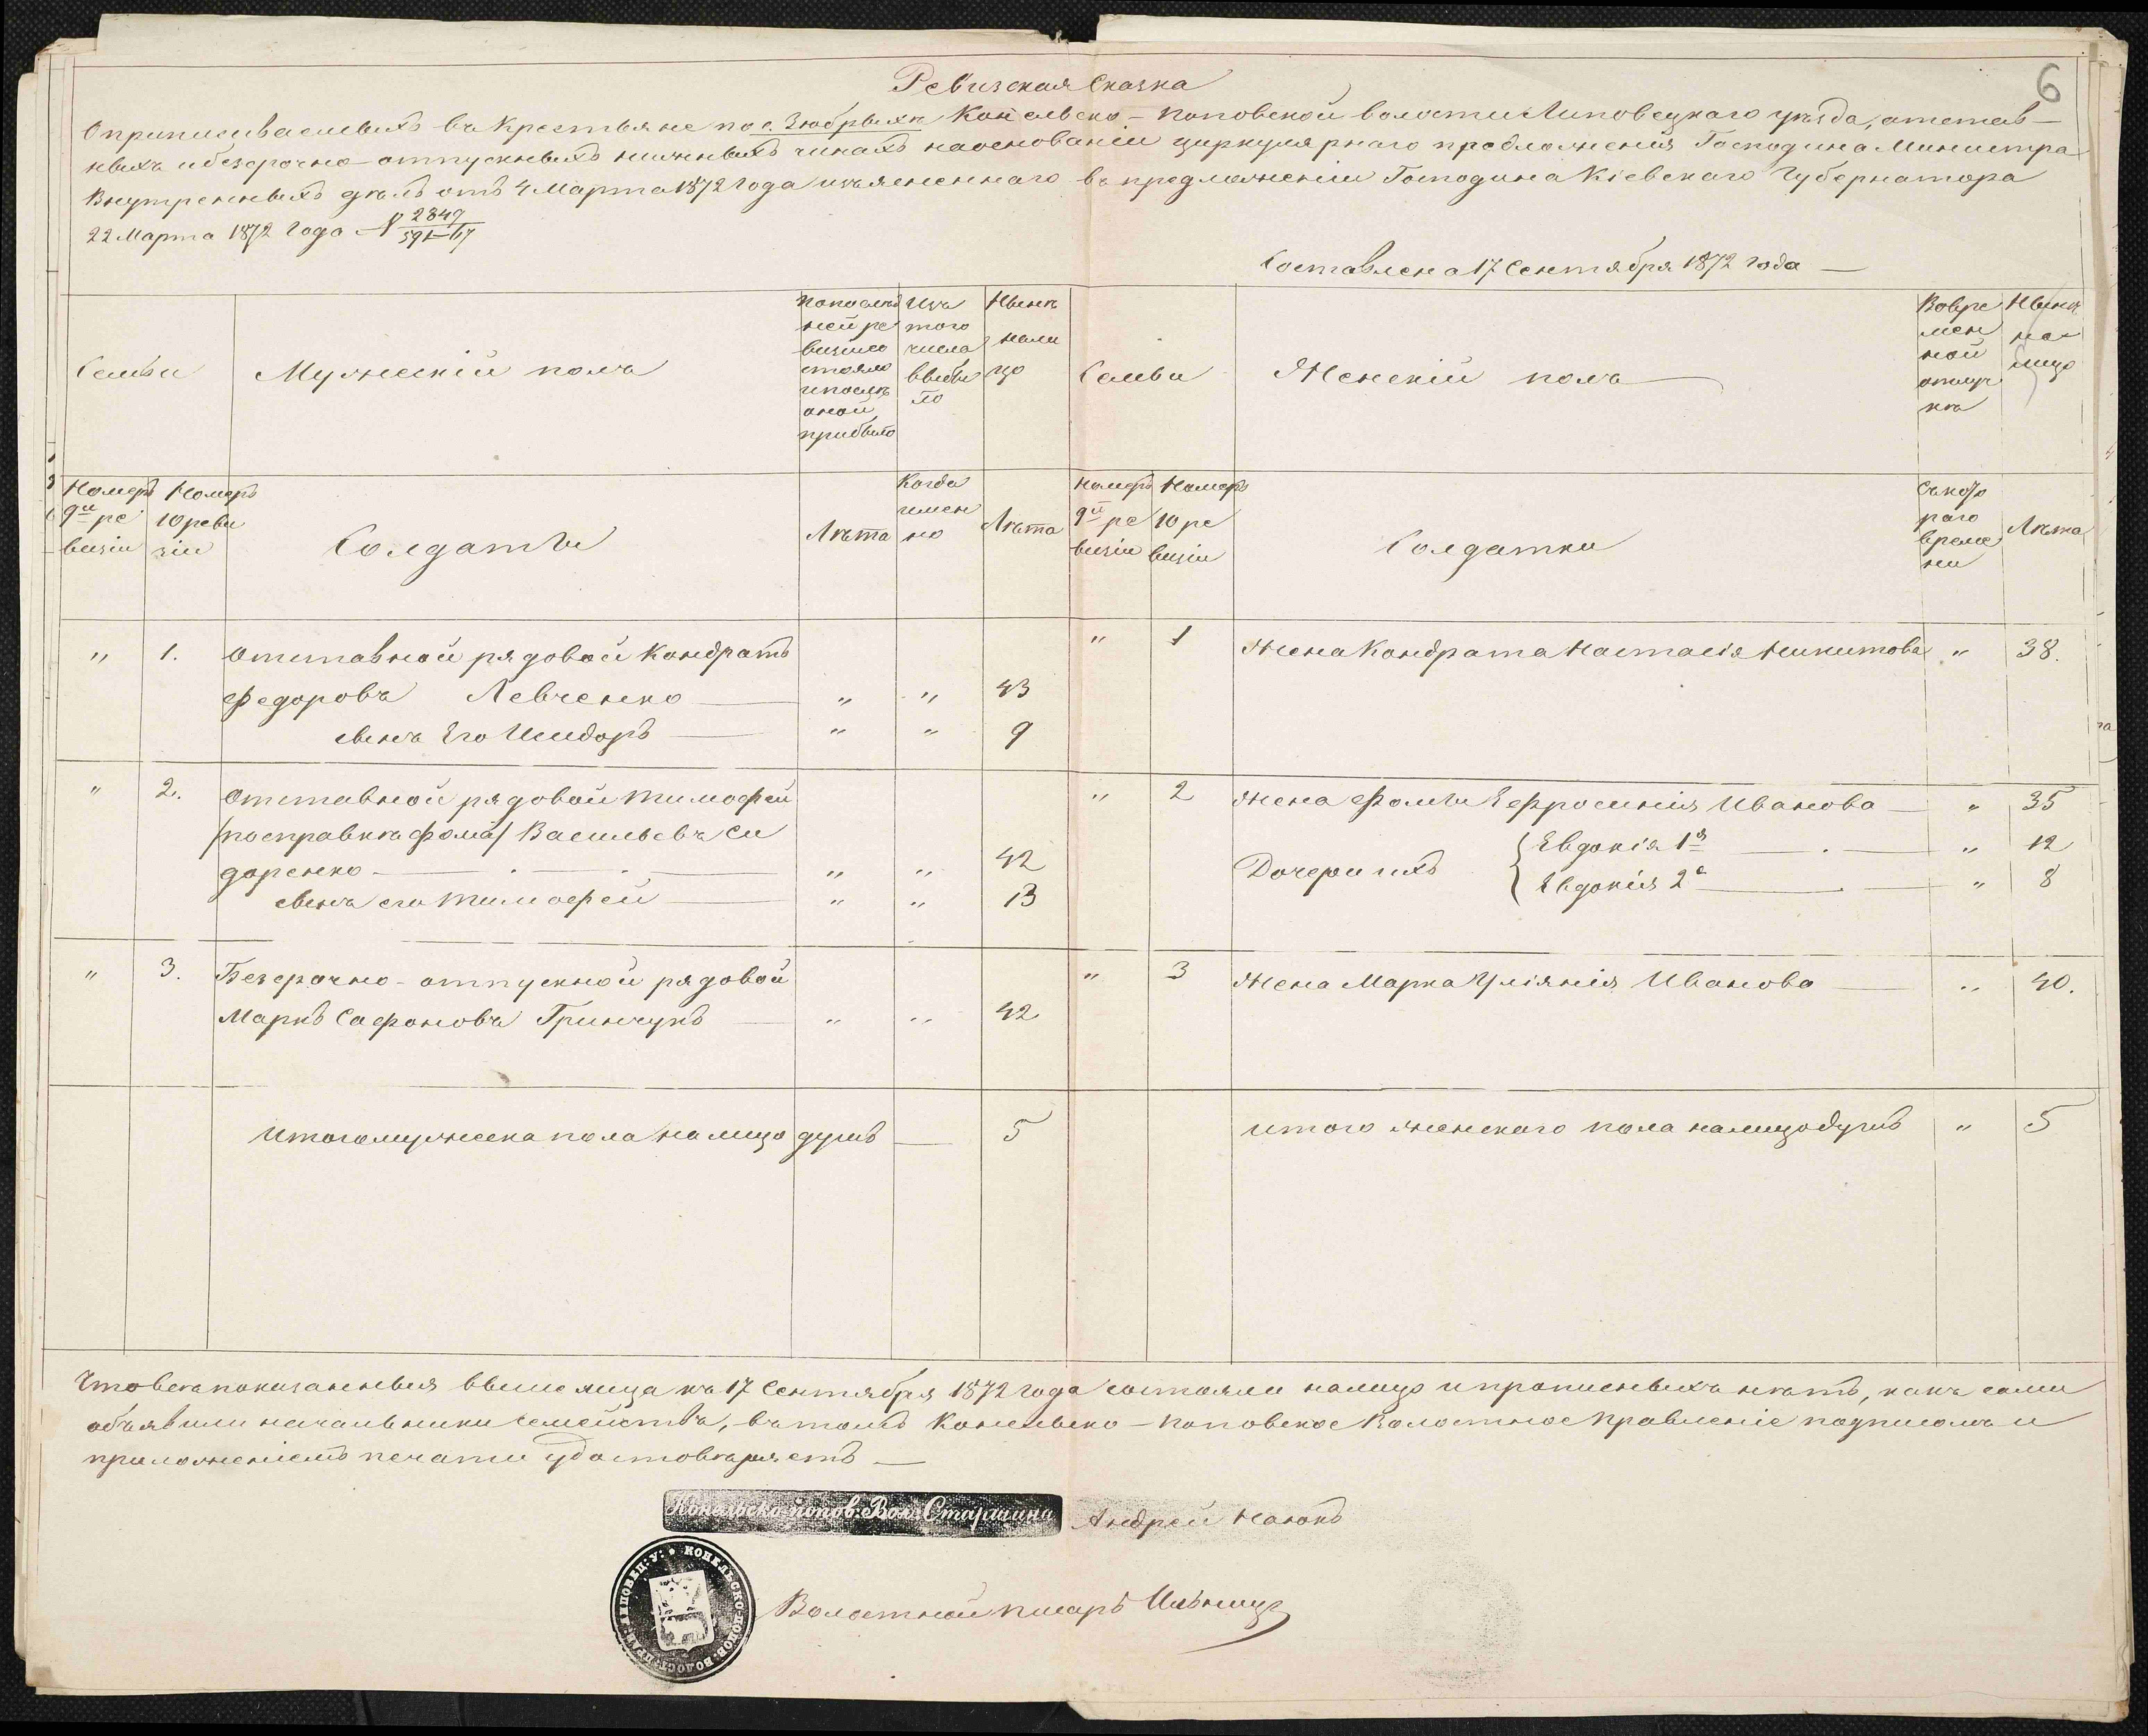 6
Ревизская Сказка
О приписываемыхъ въ крестьяне по с. Зюбрыхѣ Конельско-Поповской волости Липовецкаго уѣзда, отстав-
ныхъ и безсрочно-отпускныхъ нижныхъ чинахъ на основаніи циркулярнаго предложенія Господина Министра
Внутренныхъ дѣлъ отъ 4 Марта 1872 года изъясненнаго въ предложеніи Господина Кіевскаго Губернатора
22 Марта 1872 года №
Составлена 17 Сентября 1872 года
Семьи
Мужескій полъ
По послѣд
ней ре
визіи со
стояло
и послѣ
оной
прибыло
Изъ
того
числа
выбы
ло
Нынѣ
нали
цо
Семьи
Женскій полъ
Во вре
мен
ной
отлуч
кѣ
Нынѣ
на
лицо
Номеръ
9й ре
визіи
Номеръ
10 реви
зіи
Солдаты
Лѣта
Когда
имен
но
Лѣта
Номеръ
9й ре
визіи
Номеръ
10 ре
визіи
Солдатки
Съ кото
раго
време
ни
Лѣта
" 1. Отставной рядовой Кондратъ
Федоровъ Левченко " " 43
сынъ Его Исидоръ " " 9
" 1 Жена Кондрата Настасія Никитова " 38.
" 2. Отставной рядовой Тимофей
/по справкѣ Фома/ Васильевъ Си
доренко " " 42
сынъ его Тимофей " " 13
" 2 Жена Фомы Ефросинія Иванова " 35
Дочери ихъ { Евдокія 1я " 12
Евдокія 2я " 8
" 3. Безсрочно-отпускной рядовой
Маркъ Сафоновъ Гринчукъ " " 42
" 3 Жена Марка Уліянія Иванова " 40.
Итого мужеска пола на лицо душъ 5
итого женскаго пола на лицо душъ " 5
Что всѣ показанныя выше лица къ 17 Сентября 1872 года состояли на лицо и прописныхъ нѣтъ, какъ сами
объявили начальники семействъ, въ томъ Конельско-Поповское Волостное Правленіе подписомъ и
приложеніемъ печати удостовѣряетъ
Конельско-попов: Вол: Старшина Андрей
КОНЕЛЬСКО-ПОПОВ: ВОЛОСТ: ПР: ЛИПОВЕЦ: У:
Волостной писарь